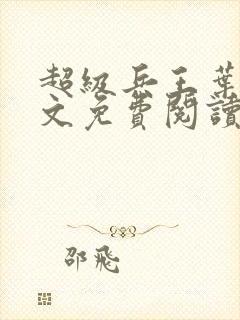 超级兵王葉
文免費閱讀
邵飛